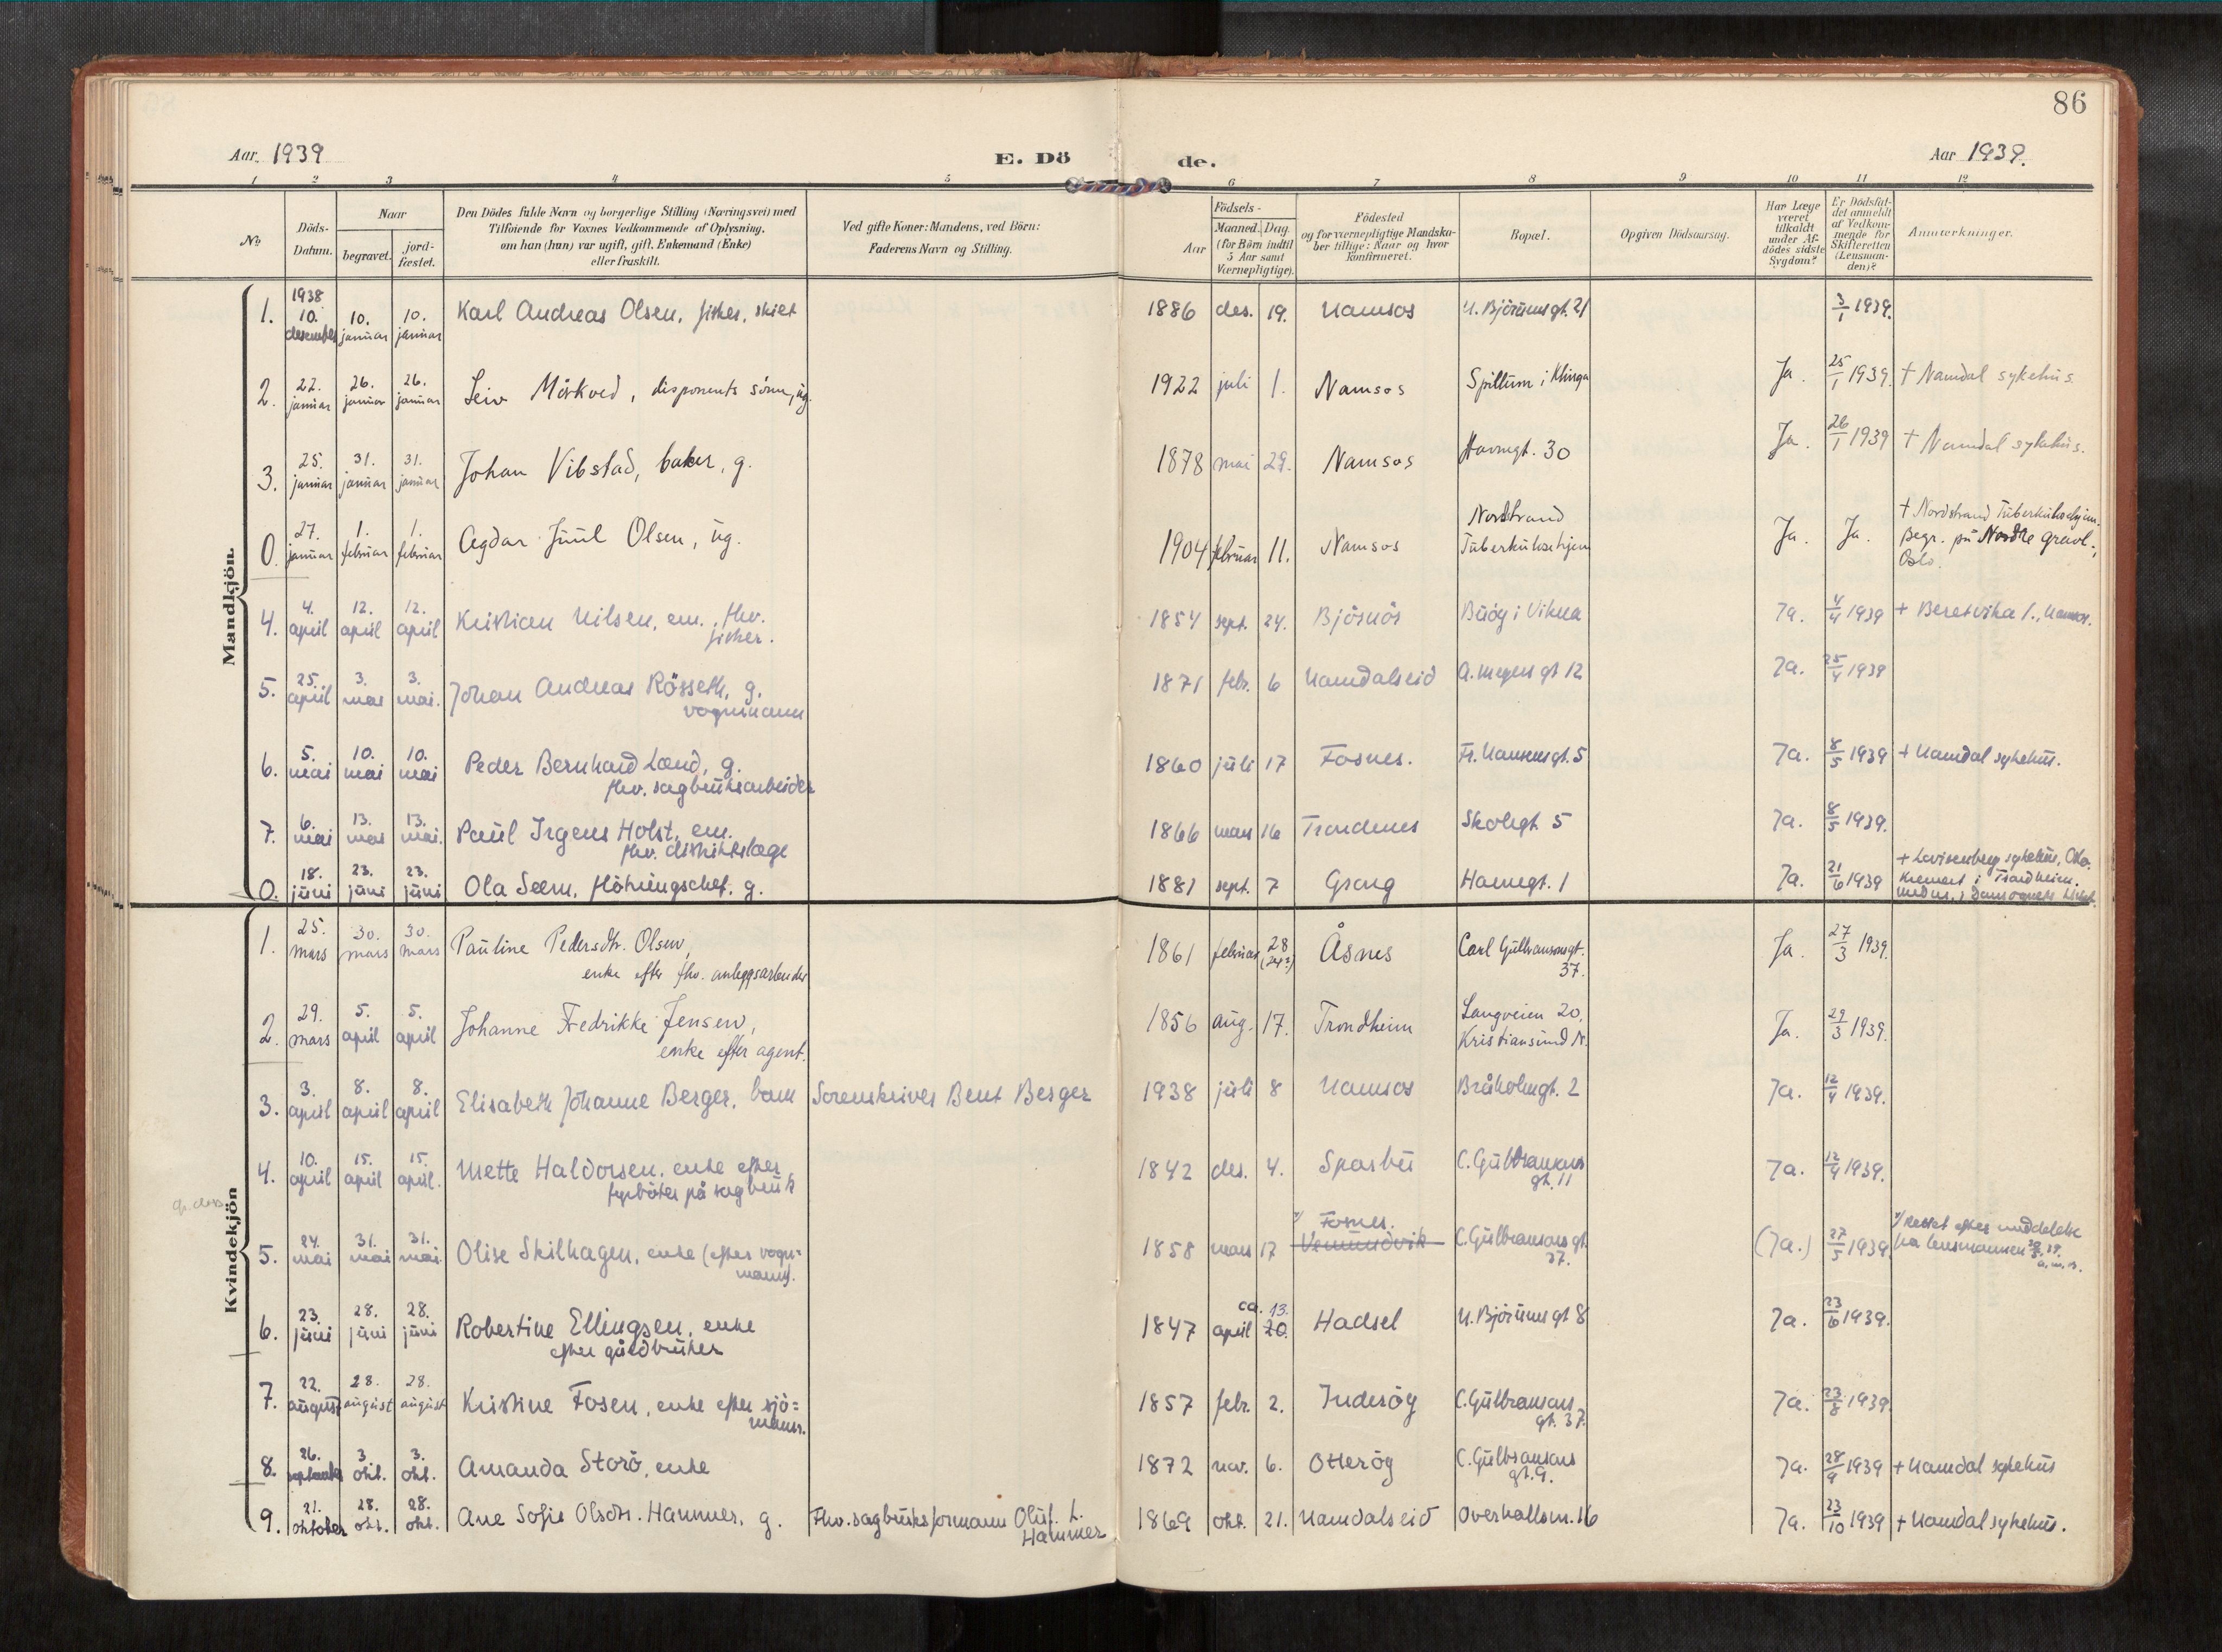 86
Aar 1939
E. Dö de.
Aar 1939.
1 2 3 4 5 6 7 8 9 10 11 12
No
Döds-
Datum.
Naar
begravet.
jord-
fæstet.
Den Dödes fulde Navn og borgerlige Stilling (Næringsvei) med
Tilföiende for Voxnes Vedkommende af Oplysning,
om han (hun) var ugift, gift, Enkemand (Enke)
eller fraskilt.
Ved gifte Koner: Mandens, ved Börn:
Faderens Navn og Stilling.
Födsels-
Aar
Maaned. Dag.
(for Börn indtil
5 Aar samt
Værnepligtige).
Födested
og for værnepligtige Mandska-
ber tillige: Naar og hvor
konfirmeret.
Bopæl.
Opgiven Dödsaarsag.
Har Læge
været
tilkaldt
under Af-
dödes sidste
Sygdom?
Er Dödsfal-
det anmeldt
af Vedkom-
mende for
Skifteretten
(Lensman-
den)?
Anmærkninger.
Mandkjön.
1. 1938 10. desember 10. januar 10. januar Karl Andreas Olsen, fisker, skilt 1886 des. 19. Namsos N. Bjørumsgt. 21 3/1 1939.
2. 22. januar 26. januar 26. januar Leiv Mörkved, disponents sönn, ug. 1922 juli 1. Namsos Spillum i Klinga Ja. 25/1 1939. + Namdal sykehus.
3. 25. januar 31. januar 31. januar Johan Vibstad, baker, g. 1878 mai 29. Namsos Havnegt. 30 Ja. 26/1 1939 + Namdal sykehus.
0. 27. januar 1. februar 1. februar Agdar Juul Olsen, ug. 1904 februar 11. Namsos Nordstrand
Tuberkulosehjem Ja. Ja. + Nordstrand Tuberkulosehjem.
Begr. på Nordre gravl.,
Oslo.
4. 4. april 12. april 12. april Kristian Nilsen, em., fhv.
fisker. 1854 sept. 24. Bjösnös Buög i Vikna Ja. 4/4 1939 + Beretvika 1., Namsos.
5. 25. april 3. mai 3. mai. Johan Andreas Rösseth, g.
vognmann 1871 febr. 6 Namdalseid A. Meyers gt 12 Ja. 25/4 1939
6. 5. mai 10. mai 10. mai Peder Bernhard Lænd, g.
fhv. sagbruksarbeider 1860 juli 17 Fosnes. Fr. Nansens gt. 5 Ja. 8/5 1939 + Namdal sykehus.
7. 6. mai 13. mai 13. mai. Paul Irgens Holst, em.
fhv. distriktslæge 1866 mars 16 Trondenes Skolegt. 5 Ja. 8/5 1939.
0. 18. juni 23. juni 23. juni Ola Seem, flöhningschef. g. 1881 sept. 7 Grong Havnegt. 1 Ja. 21/6 1939 + Lovisenberg sykehus, Oslo.
Kremert i Trondheim.
Kvindekjön
1. 25. mars 30. mars 30. mars Pauline Pedersdtr. Olsen,
enke efter fhv. anleggsarbeider 1861 februar 28 Åsnes Carl Gulbransonsgt.
37. Ja. 27/3 1939.
2. 29. mars 5. april 5. april Johanne Fredrikke Jensen,
enke efter agent. 1856 aug. 17. Trondheim Langveien 20,
Kristiansund N. Ja. 29/3 1939.
3. 3. april 8. april 8. april Elisabeth Johanne Berger, barn Sorenskriver Bent Berger 1938 juli 8 Namsos Bråholmgt. 2 Ja. 12/4 1939.
4. 10. april 15. april 15. april. Mette Haldorsen, enke efter
fyrböter på sagbruk 1842 des. 4. Sparbu C. Gulbransons
gt. 11 Ja. 12/4 1939.
5. 24. mai 31. mai 31. mai. Olise Skilhagen, enke (efter vogn-
mann). 1858 mars 17 Fosnes.
Vemundvik C. Gulbransons gt.
37. (Ja.) 27/5 1939 Rettet efter meddelelse
fra lensmannen
6. 23. juni 28. juni 28. juni Robertine Ellingsen, enke
efter gårdbruker 1847 april ca. 13. 20. Hadsel N. Bjørumsgt 8 Ja. 23/6 1939.
7. 22. august 28. august 28. august Kristine Fosen, enke efter sjö=
mann. 1857 febr. 2. Inderöy C. Gulbransons
gt. 37. Ja. 23/8 1939.
8. 26. september 3. okt. 3. okt. Amanda Storö, enke 1872 nov. 6. Otteröy C. Gulbransons
gt. 9. Ja. 28/9 1939 + Namdal sykehus
9. 21. oktober 28. okt. 28. okt. Ane Sofie Olsdtr. Hammer, g. Fhv. sagbruksformann Oluf L.
Hammer 1869 okt. 21. Namdalseid Overhallsvn. 16 Ja. 23/10 1939 + Namdal sykehus.